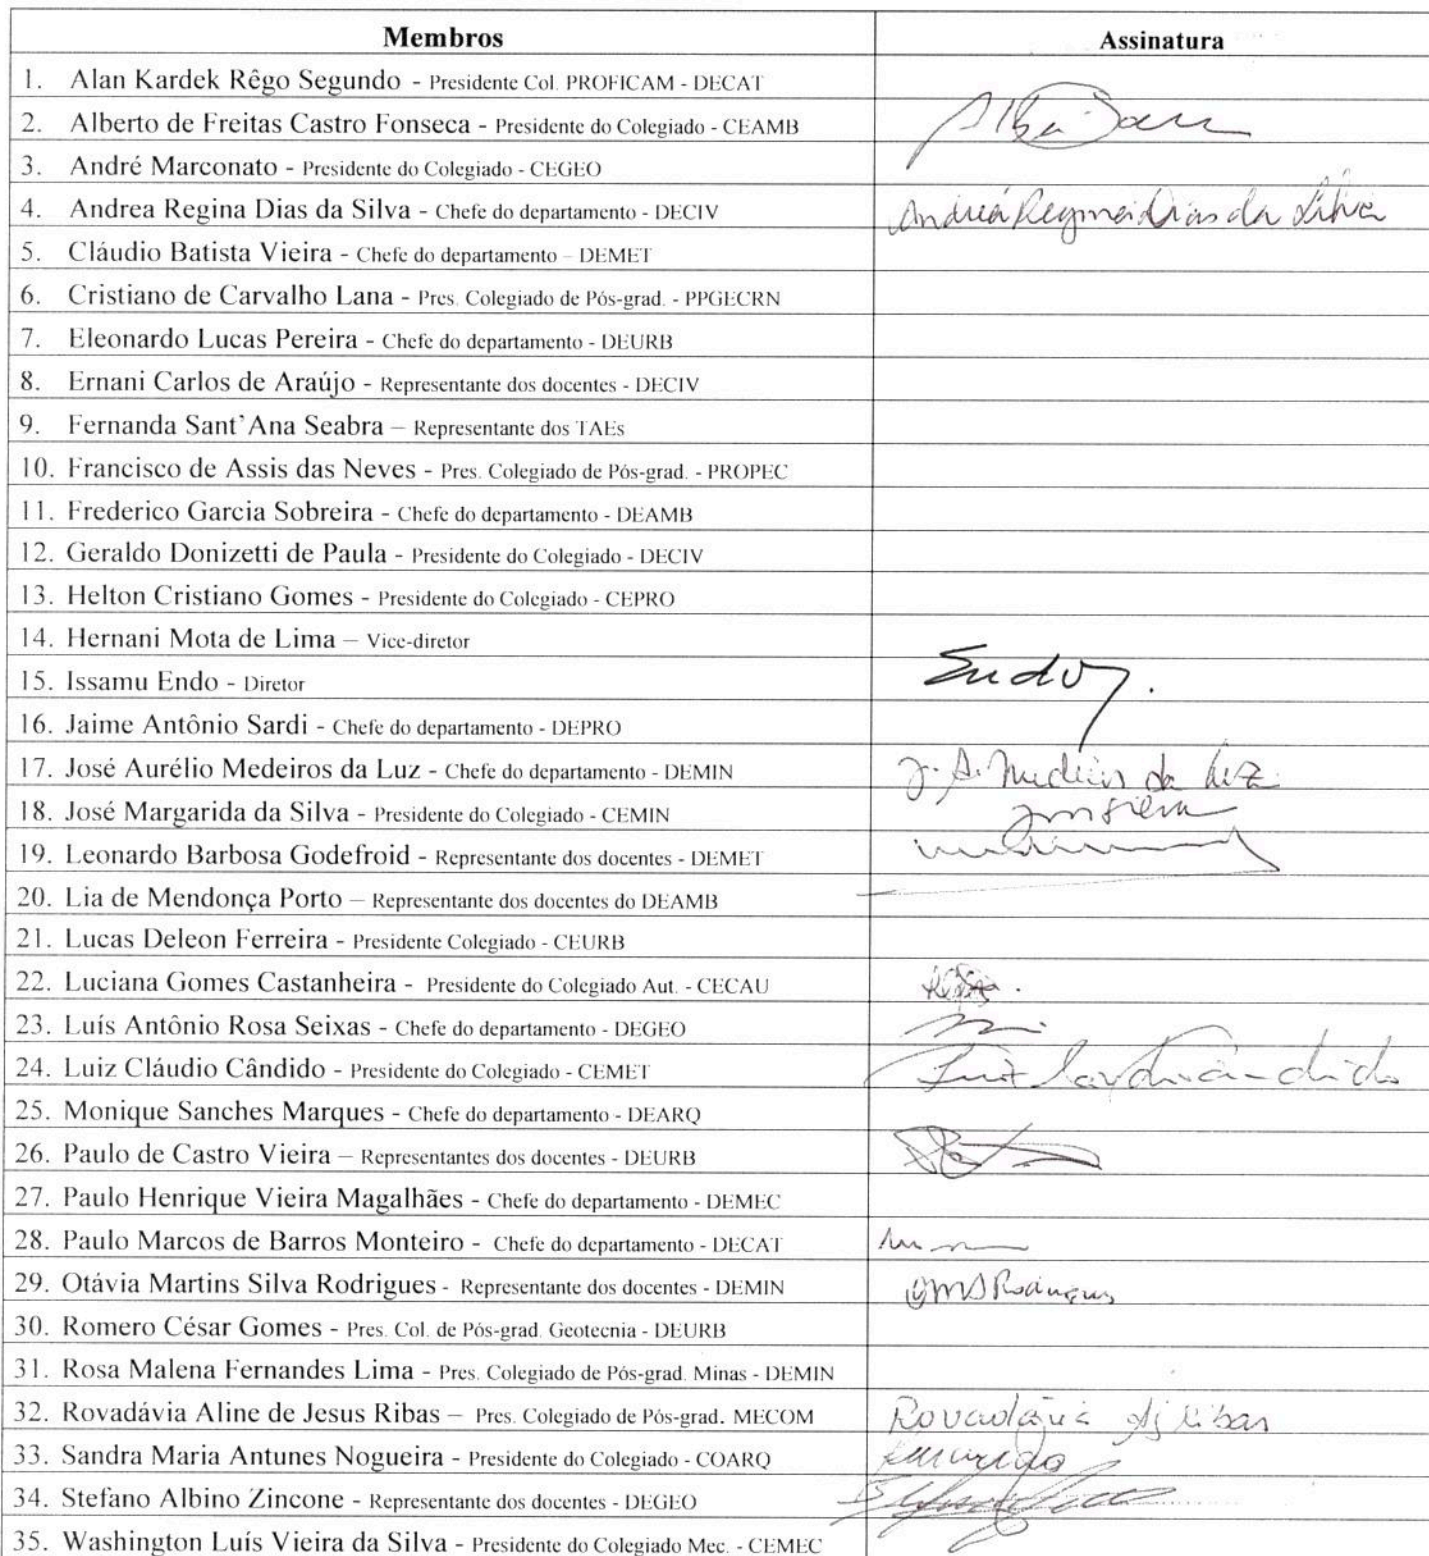 Membros Assinatura
1. Alan Kardek Rêgo Segundo - Presidente Col. PROFICAM - DECAT
2. Alberto de Freitas Castro Fonseca - Presidente do Colegiado - CEAMB
3. André Marconato - Presidente do Colegiado - CEGEO
4. Andrea Regina Dias da Silva - Chefe do departamento - DECIV Andréa Regina Dias da Silva
5. Cláudio Batista Vieira - Chefe do departamento – DEMET
6. Cristiano de Carvalho Lana - Pres. Colegiado de Pós-grad. - PPGECRN
7. Eleonardo Lucas Pereira - Chefe do departamento - DEURB
8. Ernani Carlos de Araújo - Representante dos docentes - DECIV
9. Fernanda Sant'Ana Seabra – Representante dos TAEs
10. Francisco de Assis das Neves - Pres. Colegiado de Pós-grad. - PROPEC
11. Frederico Garcia Sobreira - Chefe do departamento - DEAMB
12. Geraldo Donizetti de Paula - Presidente do Colegiado - DECIV
13. Helton Cristiano Gomes - Presidente do Colegiado - CEPRO
14. Hernani Mota de Lima – Vice-diretor
15. Issamu Endo - Diretor Endo
16. Jaime Antônio Sardi - Chefe do departamento - DEPRO
17. José Aurélio Medeiros da Luz - Chefe do departamento - DEMIN J. A. Medeiros da Luz
18. José Margarida da Silva - Presidente do Colegiado - CEMIN jmsilva
19. Leonardo Barbosa Godefroid - Representante dos docentes - DEMET
20. Lia de Mendonça Porto – Representante dos docentes do DEAMB
21. Lucas Deleon Ferreira - Presidente Colegiado - CEURB
22. Luciana Gomes Castanheira - Presidente do Colegiado Aut. - CECAU
23. Luís Antônio Rosa Seixas - Chefe do departamento - DEGEO
24. Luiz Cláudio Cândido - Presidente do Colegiado - CEMET Luiz Cláudio Cândido
25. Monique Sanches Marques - Chefe do departamento - DEARQ
26. Paulo de Castro Vieira – Representantes dos docentes - DEURB
27. Paulo Henrique Vieira Magalhães - Chefe do departamento - DEMEC
28. Paulo Marcos de Barros Monteiro - Chefe do departamento - DECAT
29. Otávia Martins Silva Rodrigues - Representante dos docentes - DEMIN OMSRodrigues
30. Romero César Gomes - Pres. Col. de Pós-grad. Geotecnia - DEURB
31. Rosa Malena Fernandes Lima - Pres. Colegiado de Pós-grad. Minas - DEMIN
32. Rovadávia Aline de Jesus Ribas – Pres. Colegiado de Pós-grad. MECOM Rovadávia Aj Ribas
33. Sandra Maria Antunes Nogueira - Presidente do Colegiado - COARQ
34. Stefano Albino Zincone - Representante dos docentes - DEGEO
35. Washington Luís Vieira da Silva - Presidente do Colegiado Mec. - CEMEC